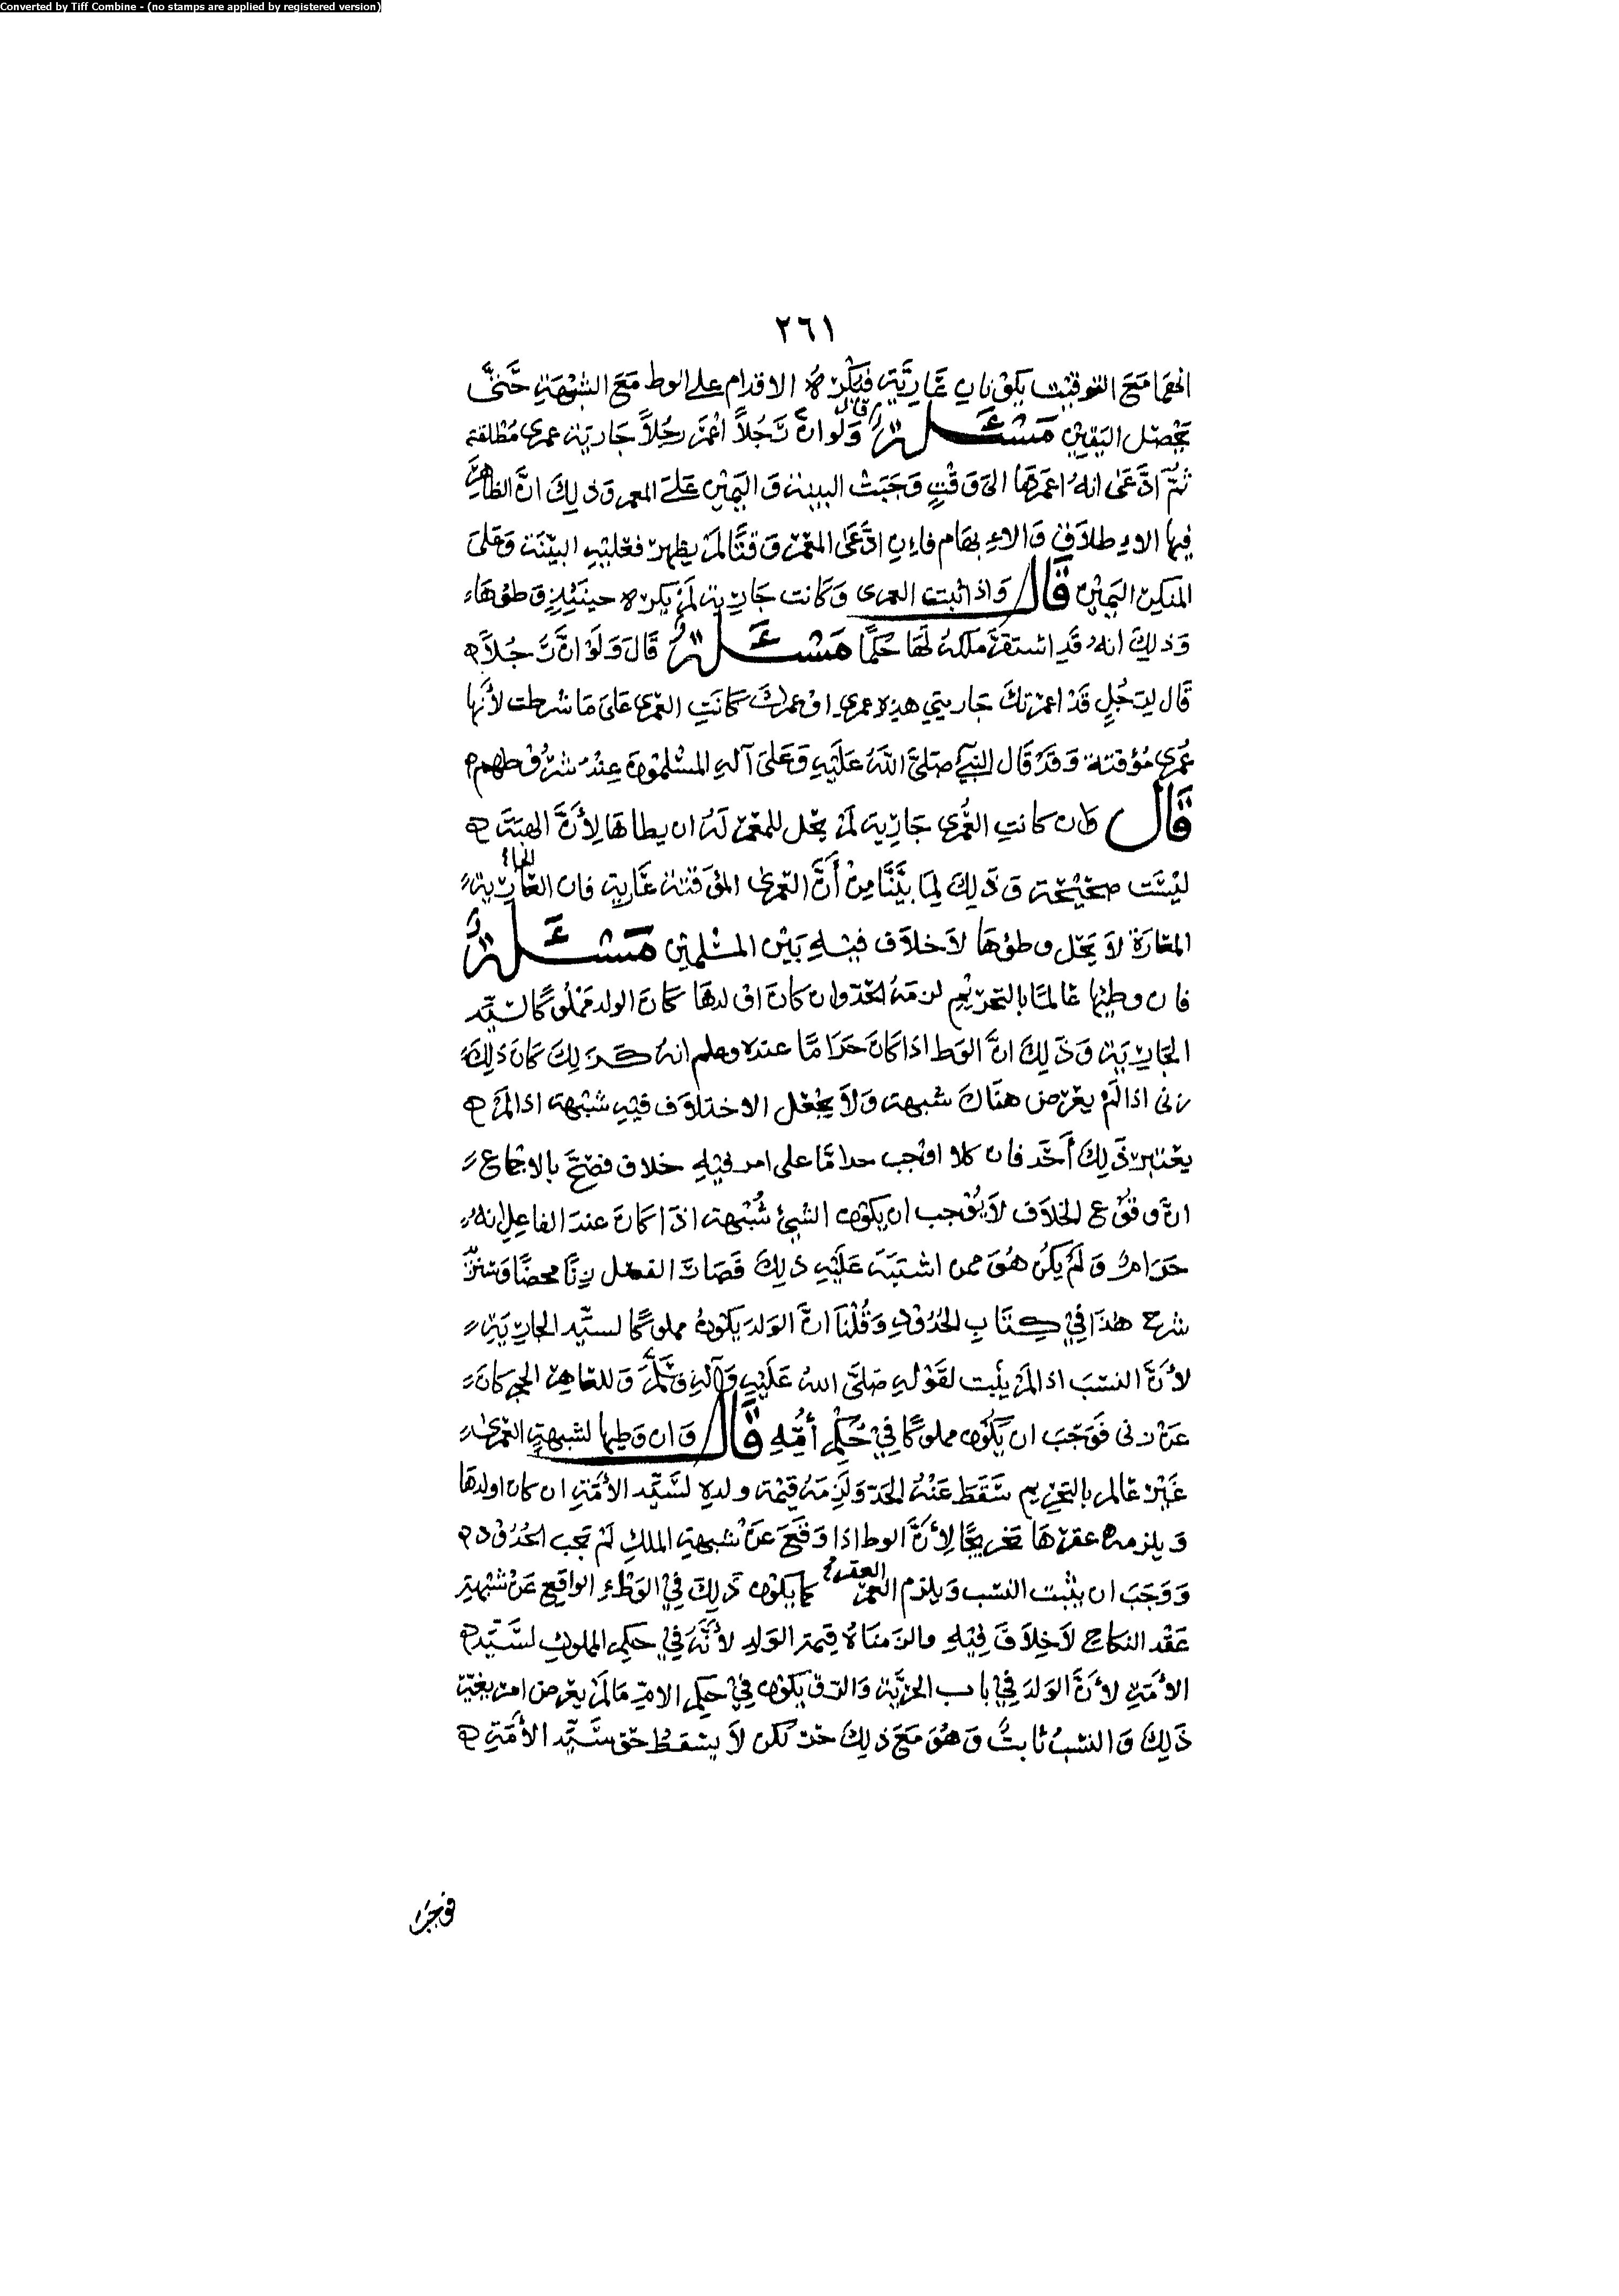 Converted by Tiff Combine - (no stamps are applied by registered version)
٢٦١
انهما مَعَ التوقيْت يكوْنان عَاريَّة فيَكْره الاقدام على الوط مَعَ الشبْهَة حَتىَّ
يَحْصل اليَقيْن مَسْئَلة قال وَلو انَّ رَجُلاً اعْمَر رجُلاً جَارية عمرى مُطْلقة
ثمَّ ادَّعَى انهُ اعمَرهَا الىَ وَقْتٍ وَجَبَتْ البينة وَ اليَميْن عَلىَ المعمر وَذلِكَ انَّ الظاهِرَ
فيهَا الاِطلاَق وَالاِبهَام فاِنِ ادَّعَى المعْمر وَقتًا لَمْ يظهرْ فعَليْهِ البيّنَة وَعَلىَ
المنكِر اليَميْن قَالَ وَاذ اثبت العمرى وَكَانت جَارِية لَمْ يكره حينَئِذٍ وَطوْهَاء
وَذلِكَ انهُ قَدِ اسْتقرَّ ملكهُ لهَا حُكمًا مَسْئَلة قَالَ وَلَوْ انَّ رَجُلاً
قَال لِرَجُلٍ قَدْ اعمرْتكَ جَاريتي هذِه عمري اوْ عمركَ كَانَتِ العمْرى عَلىَ مَا شرطت لأنها
عُمْرى مُؤقتة وَقَدْ قَال النبيُّ صَلىَّ اللّٰهُ عَلَيْهِ وَعَلىَ آلهِ المسْلموْنَ عِنْدَ شرُوْطِهم
قَالَ فان كانتِ العُمْرى جَارِية لَمْ يحل للمعْمر لَهُ ان يطاهَا لِأنَّ الهبَةَ
ليْسَت صحِيْحَة وَذَلِكَ لِمَا بيَّنَّا مِنْ أَنَّ العمْرى المؤقتة عَارية فان الجارية
المعَارَة لاَ يَحل وطؤهَا لاَ خلاَف فيْهِ بَيْن المسْلميْن مَسْئَلة
فان وطيهَا عَالمًا بالتحْرِيْم لزمَهُ الحَدّ وان كَانَ اوْلدهَا كَانَ الولد مَمْلُوْكًا لسَيِّد
الجَارِيَة وَذَلِكَ انَّ الوَط اذا كَانَ حَرَامًا عنده وعلم انهُ كَذلِكَ كَانَ ذلِكَ
زنى اذا لَمْ يعْرض هنَاكَ شبهة وَلاَ يُجْعَل الاختلاَف فيْهِ شبْهة اذا لَمْ
يعْتبرْ ذَلِكَ أَحَد فان كلا اوْجب حدامّا على امر فيْهِ خلاف فصَحَّ بالاجماع
انَّ وقوْع الخلاَف لاَ يُوْجب ان يكوْن الشيْئ شُبْهة اذَا كَانَ عندَ الفاعِل انهُ
حَرَامٌ وَلَمْ يَكُنْ هُوَ ممن اشتبَهَ عَلَيْهِ ذلِكَ فَصَارَ الفعْل زِنًا محضًا وَسَنَزِيْدُ
شرح هٰذَا فِيْ كِتَابِ الحُدُوْدِ وَقُلْنَا انَّ الوَلدَ يَكوْنُ مملوكًا لسيِّد الجارِيَةِ
لأَنَّ النسَبَ اذ الَمْ يثبت لقَوْلهِ صَلىَّ اللهُ عَلَيْهِ وَآلهِ وَسَلَّمَ وَللعَاهر الحجَر كَانَ
عَنْ زنى فَوَجَبَ ان يَكُوْن مملوكًا فِيْ حُكْمِ أُمِّهِ قَالَ وَان وَطيها لشبهةِ العمْرىٰ
غَيْرَ عَالم بالتحْريم سَقطَ عَنْهُ الحَدّ وَلَزِمَهُ قِيْمَة ولدهِ لسَيِّد الأَمَةِ ان كان اولدهَا
وَيلزمهُ عقرهَا تخريجًا لِأَنَّ الوط اذا وَقَعَ عَنْ شبهةِ الملكِ لَمْ تجب الحُدُوْد
وَوَجَبَ ان يثْبت النسَب وَيلزم العقر كما يَكوْن ذَلِكَ فِيْ الوَطْءِ الواقِع عَنْ شبْهةِ
عَقْد النكاح لاَ خِلاَفَ فِيْهِ والزمنَاهُ قِيمَة الوَلدِ لأنَّهُ فِيْ حكمِ المملوكِ لسَيِّدِ
الأَمَةِ لأَنَّ الوَلدَ فِيْ باب الحرِّيَّة وَالرّق يَكوْن فِيْ حكمِ الامِّ مَا لَمْ يعْرض امر يغيِّر
ذَلِكَ وَالنسَبُ ثابتٌ وَهُوَ مَعَ ذلِكَ حرّ لكن لاَ يسْقطُ حَقّ سَيِّد الأَمَةِ
فوجبَ